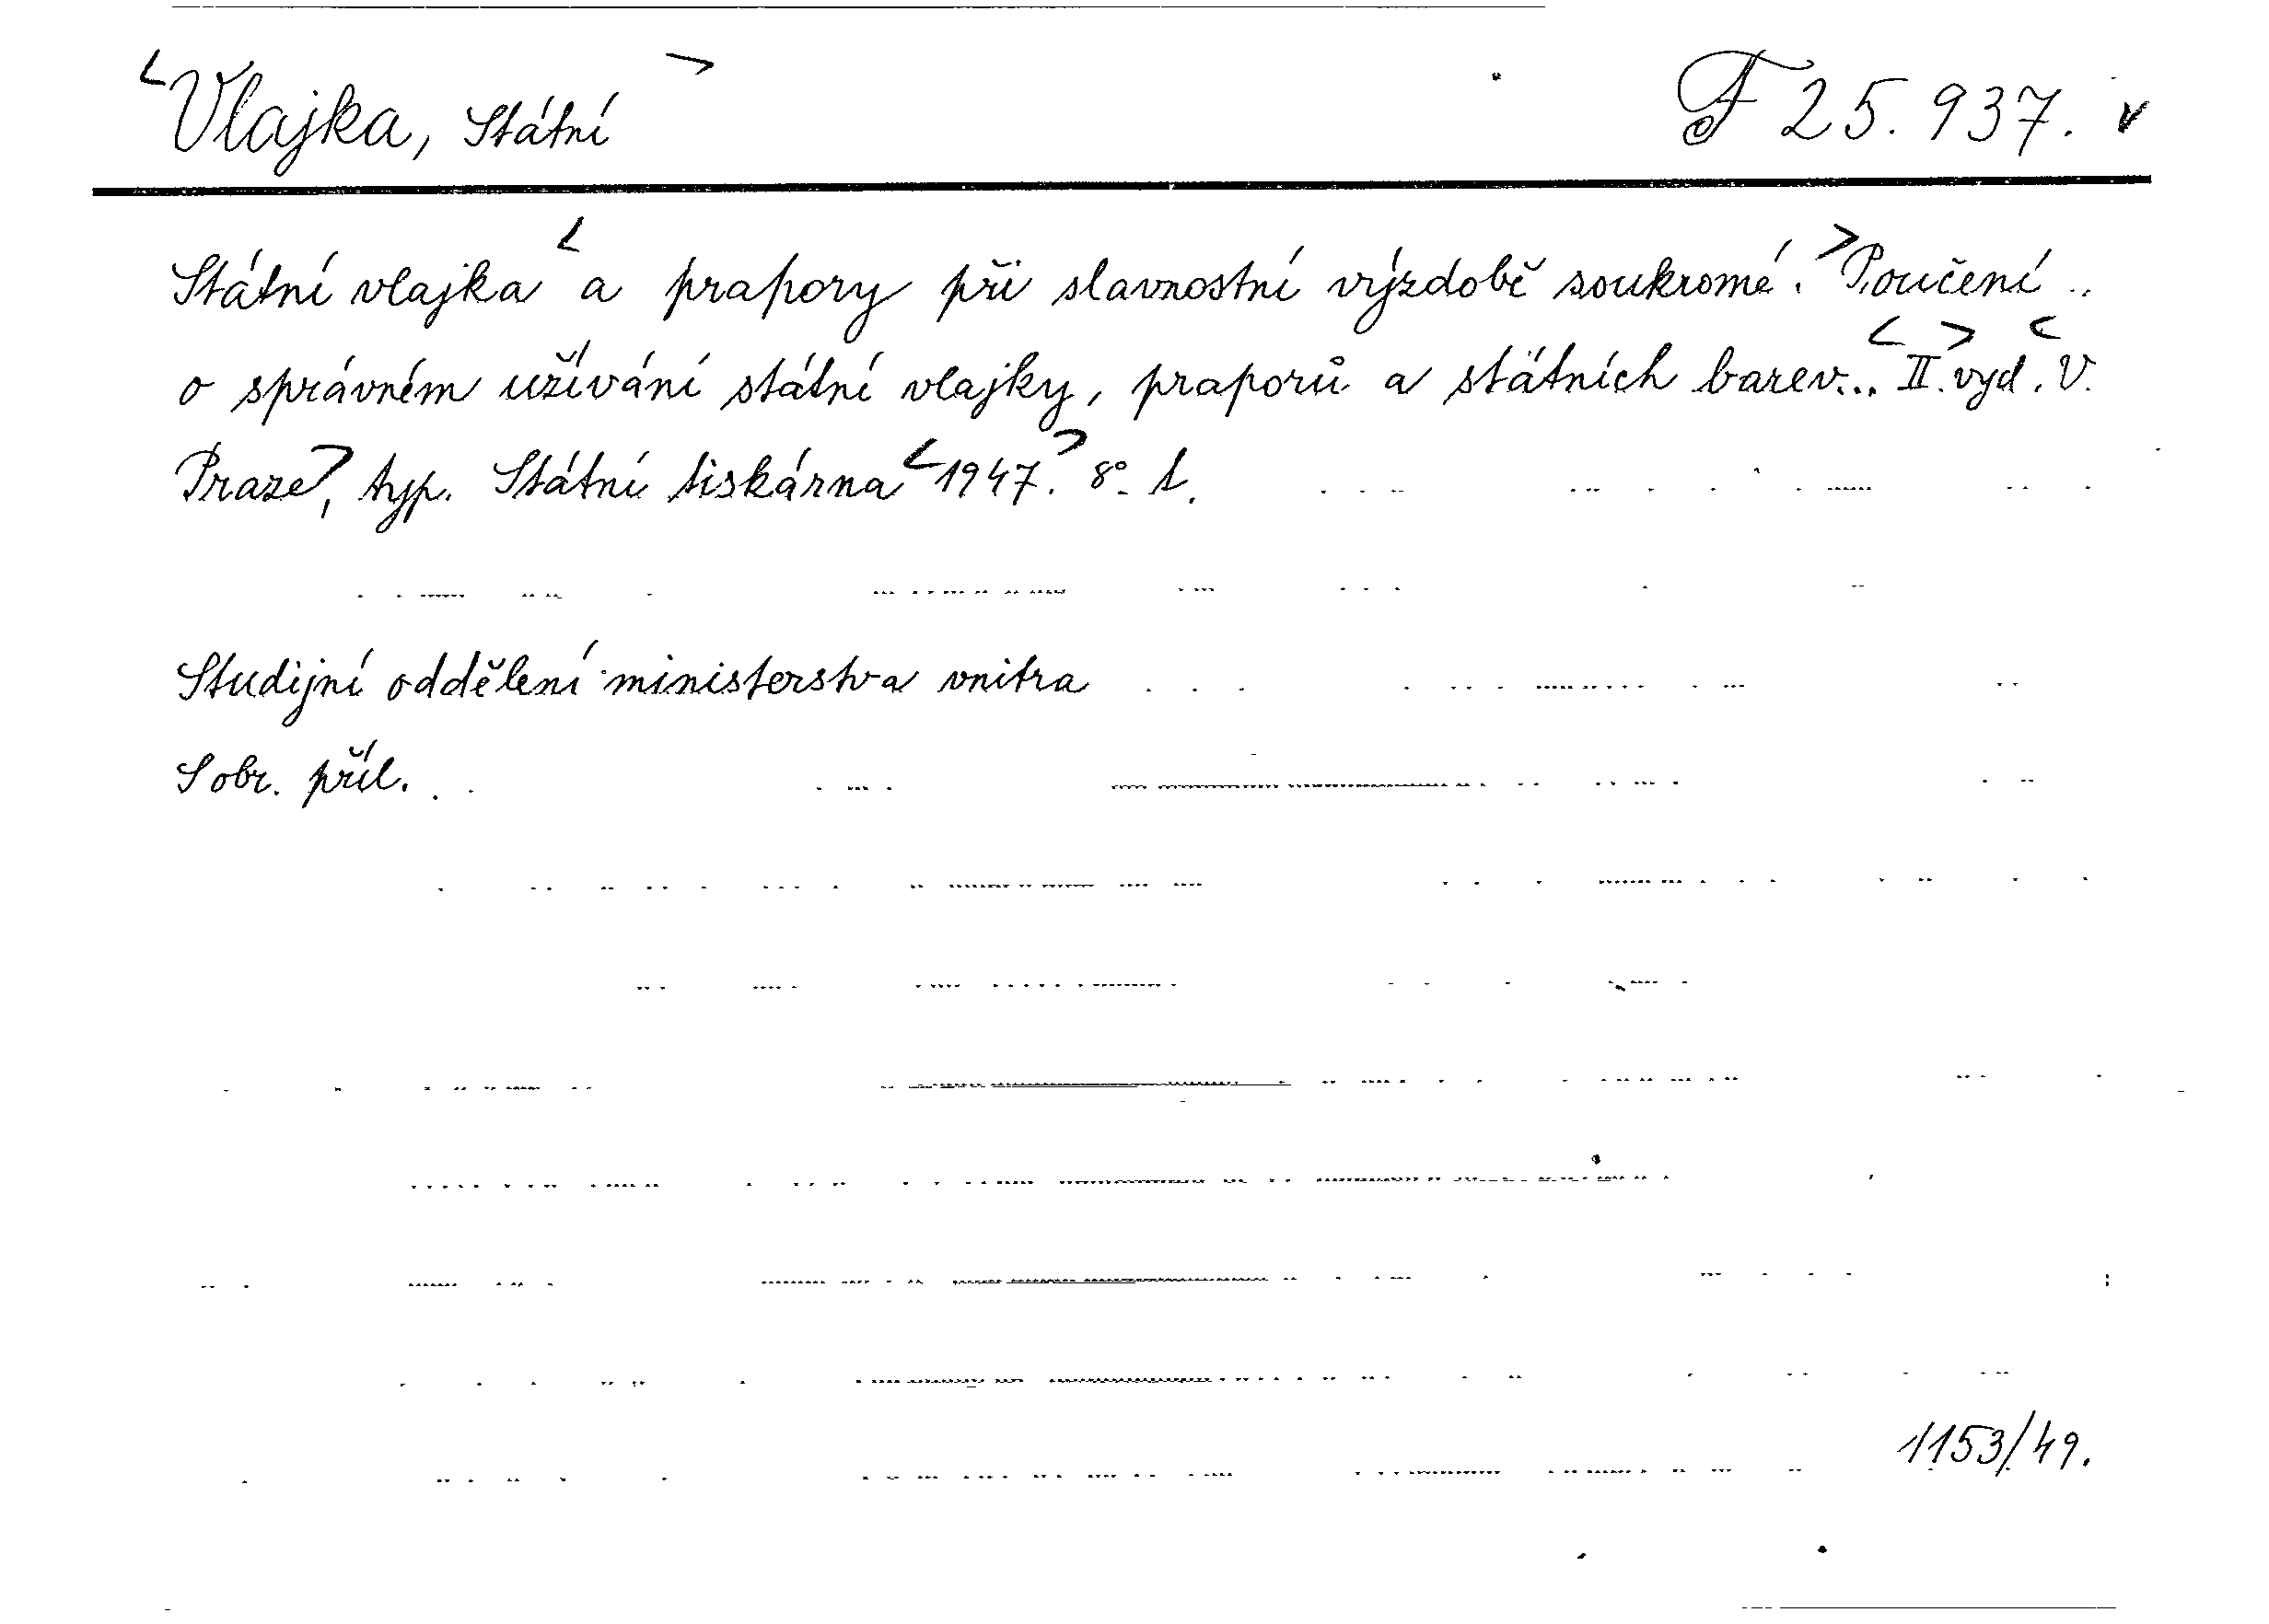 <Vlajka, Státní> F 25.937. v
Státní vlajka < a prapory při slavnostní výzdobě soukromé. > Poučení ..
o správném užívání státní vlajky, praporů a státních barev... < II. > vyd. < V.
Praze>, typ. Státní tiskárna < 1947. > 8°.
Studijní oddělení ministerstva vnitra
S obr. příl.
1153/49.